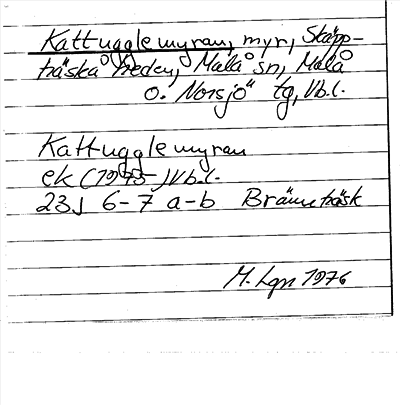 Kattugglemyran, myr, Skäpp-
träskåheden, Malå sn, Malå
o. Norsjö tg, Vb.l.
Kattugglemyran
ek (1975-) Vb.l.
23J 6-7 a-b Brännträsk
M. Lgn 1976